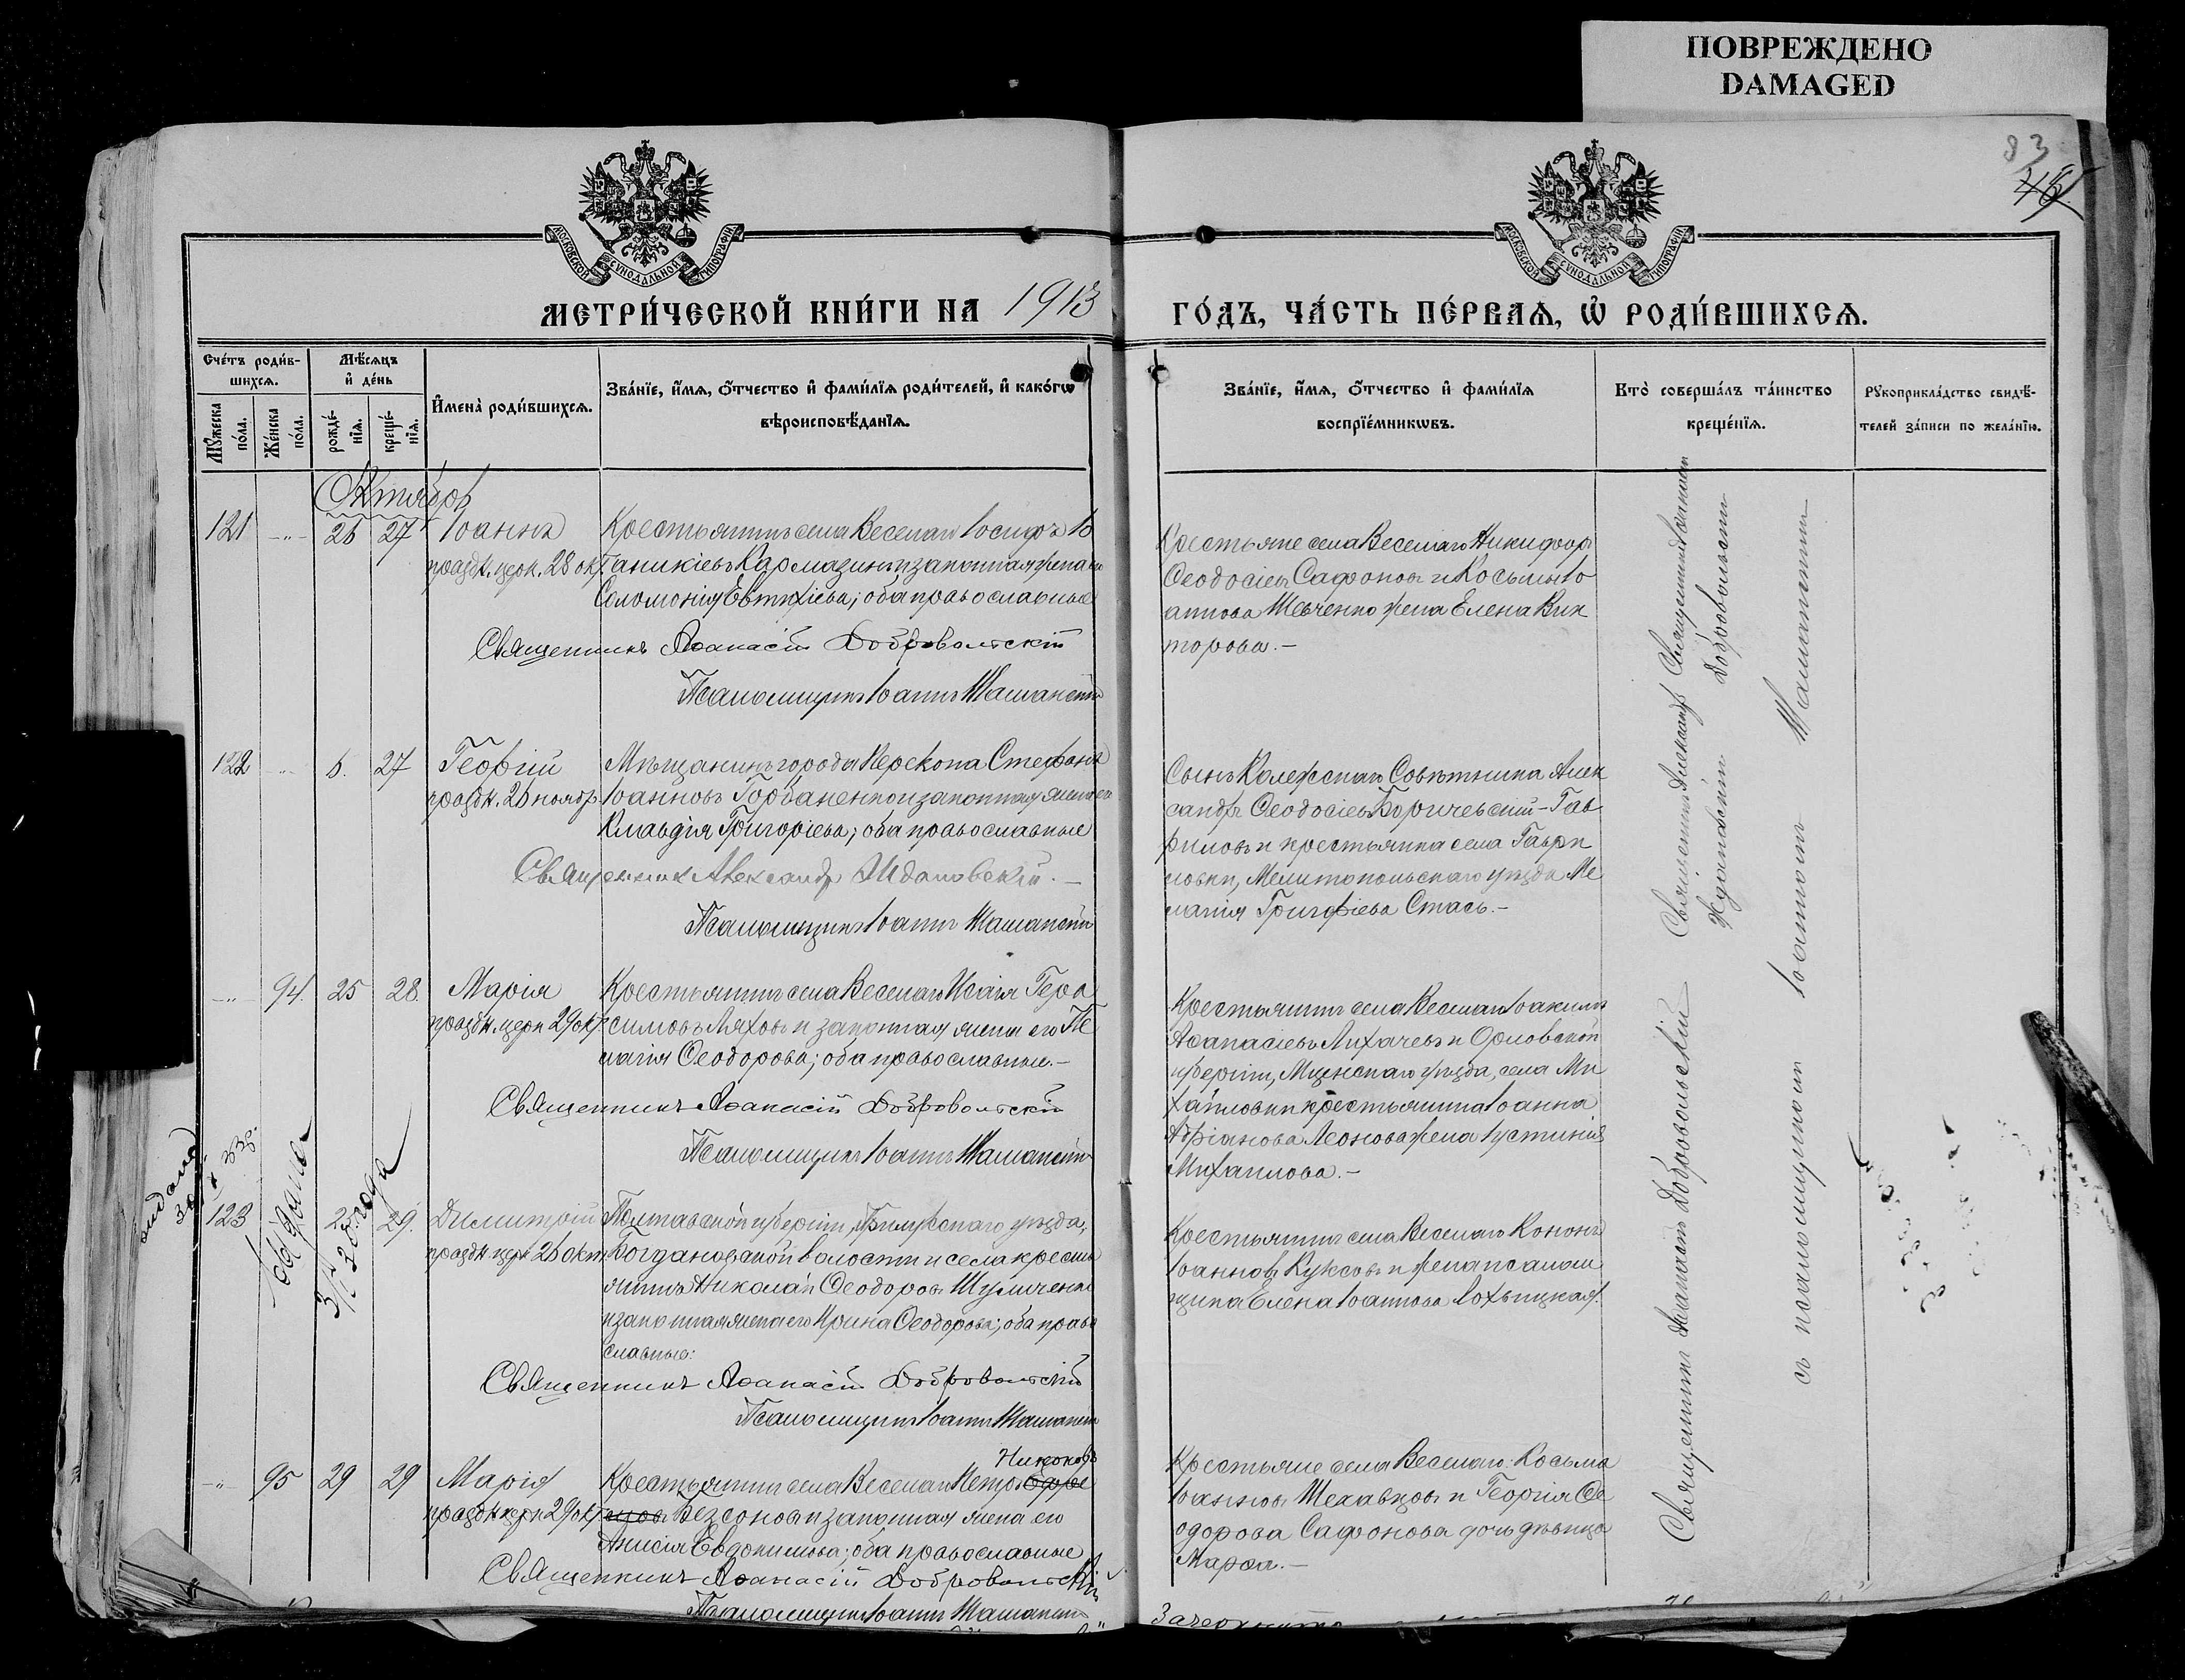 ПОВРЕЖДЕНО
DAMAGED
83
МОСКОВСКОЙ СѴНОДАЛЬНОЙ ТИПОГРАФІИ
МОСКОВСКОЙ СѴНОДАЛЬНОЙ ТИПОГРАФІИ
МЕТРИ́ЧЕСКОЙ КНИ́ГИ НА 1913
ГО́ДЪ, ЧА́СТЬ ПЕ́РВАѦ, Ѡ҆ РОДИ́ВШИХСѦ.
Сче́тъ роди́в-
шихсѧ.
Мꙋ́жеска по́ла.
Же́нска по́ла.
Мѣ́сѧцъ
и҆ де́нь
рожде́-
нїѧ.
креще́-
нїѧ.
И҆мена̀ роди́вшихсѧ.
Зва́нїе, и҆́мѧ, ѻ҆́тчество и҆ фами́лїѧ роди́телей, и҆ како́гѡ
вѣроисповѣ́данїѧ.
Зва́нїе, и҆́мѧ, ѻ҆́тчество и҆ фами́лїѧ
воспрїе́мникѡвъ.
Кто̀ соверша́лъ та́инство
креще́нїѧ.
Рꙋкоприкла́дство свидѣ́-
телей за́писи по жела́нїю.
Октябрь
121 -"- 26 27 Іоаннъ
праздн. церк. 28 окт.
Крестьянинъ села Веселаго Іосифъ Іо
аникіевъ Кармазинъ и законная жена его
Соломонія Евтихіева; оба православные
Священникъ Аѳанасій Добровольскій
Псаломщикъ Іоаннъ Шаманскій
Крестьяне села Веселаго Никифоръ
Ѳеодосіевъ Сафоновъ и Косьмы Іо
аннова Шевченко жена Елена Вик
торова.-
122 -"- 6. 27 Георгій
праздн. 26 ноябр.
Мѣщанинъ города Перекопа Стефанъ
Іоанновъ Горбаненко и законная жена его
Клавдія Григоріева; оба православные
Священник Александръ Ждановскій.-
Псаломщикъ Іоаннъ Шаманскій
Сынъ Коллежскаго Совѣтника Алек
сандръ Ѳеодосіевъ Боричевскій-Гав
риловъ и крестьянка села Гаври
ловки, Мелитопольскаго уѣзда Ме
лагія Григоріева Стась.-
-"- 94. 25 28. Марія
праздн. церк. 29 окт.
Крестьянинъ села Веселаго Исаія Гера
симовъ Ляховъ и законная жена его Пе
лагія Ѳеодорова; оба православные.-
Священникъ Аѳанасій Добровольскій
Псаломщикъ Іоаннъ Шаманскій
Крестьянинъ села Веселаго Іоакимъ
Аѳанасіевъ Лихачевъ и Орловской
губерніи, Мценскаго уѣзда, села Ми
хайловки крестьянина Іоанна
Адріанова Леонова жена Іустинія
Михаилова.-
123 25. 29. Димитрій
праздн церк 26 окт.
Полтавской губерніи, Прилукскаго уѣзда,
Богдановской волости и села кресть
янинъ Николай Ѳеодоровъ Шуличенко
и законная жена его Ирина Ѳеодорова; оба право
славные:
Священникъ Аѳанасій Добровольскій
Псаломщикъ Іоаннъ Шаманскій
Крестьянинъ села Веселаго Кононъ
Іоанновъ Куксовъ и жена псалом
щика Елена Іоаннова
-"- 95 29 29 Марія
праздн церк 29 окт.
Никоновъ
Крестьянинъ села Веселаго Петръ
Безсоновъ и законная жена его
Анисія Евдокимова; оба православные
Священникъ Аѳанасій Добровольскій
Псаломщикъ Іоаннъ Шаманскій
Крестьяне села Веселаго: Косьма
Іоанновъ Шекавцовъ и Георгія Ѳе
одорова Сафонова дочь дѣвица
Марѳа.-
Священникъ Александръ
Ждановскій
Священникъ Аѳанасій
Добровольскій
Священникъ Аѳанасій Добровольскій
съ псаломщикомъ Іоанномъ Шаманскимъ